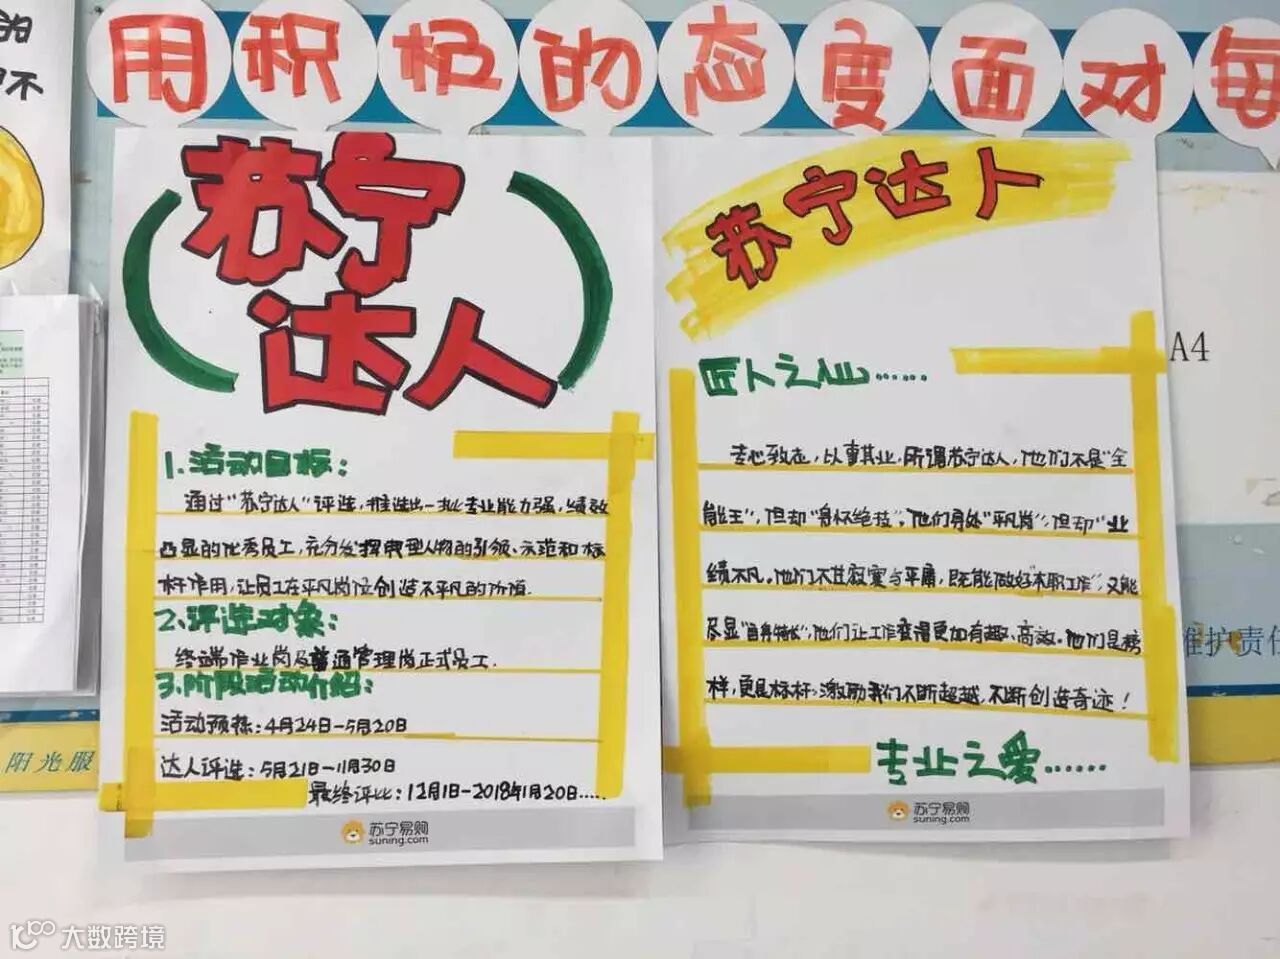 用积极的态度面对每
苏宁
达人
1.活动目标:
通过"苏宁达人"评选,推选出一批专业能力强,绩效
凸显的优秀员工,充分发挥典型人物的引领、示范和标
杆作用,让员工在平凡岗位创造不平凡的价值.
2.评选对象:
终端作业岗及普通管理岗正式员工.
3.阶段活动介绍:
活动预热:4月24日-5月20日
达人评选:5月21日-11月30日
最终评比:12月1日-2018年1月20日.....
苏宁易购
suning.com
苏宁达人
匠人之心......
专心致志,以事其业,所谓苏宁达人,他们不是"全
能王",但却"身怀绝技",他们身处"平凡岗",但却"业
绩不凡。他们不甘寂寞与平庸,既能做好"本职工作",又能
尽显"自身特长",他们让工作变得更加有趣、高效。他们是榜
样,更是标杆;激励我们不断超越,不断创造奇迹!
专业之爱......
苏宁易购
suning.com
A4
维护责任
阳光服
的
不
大数跨境